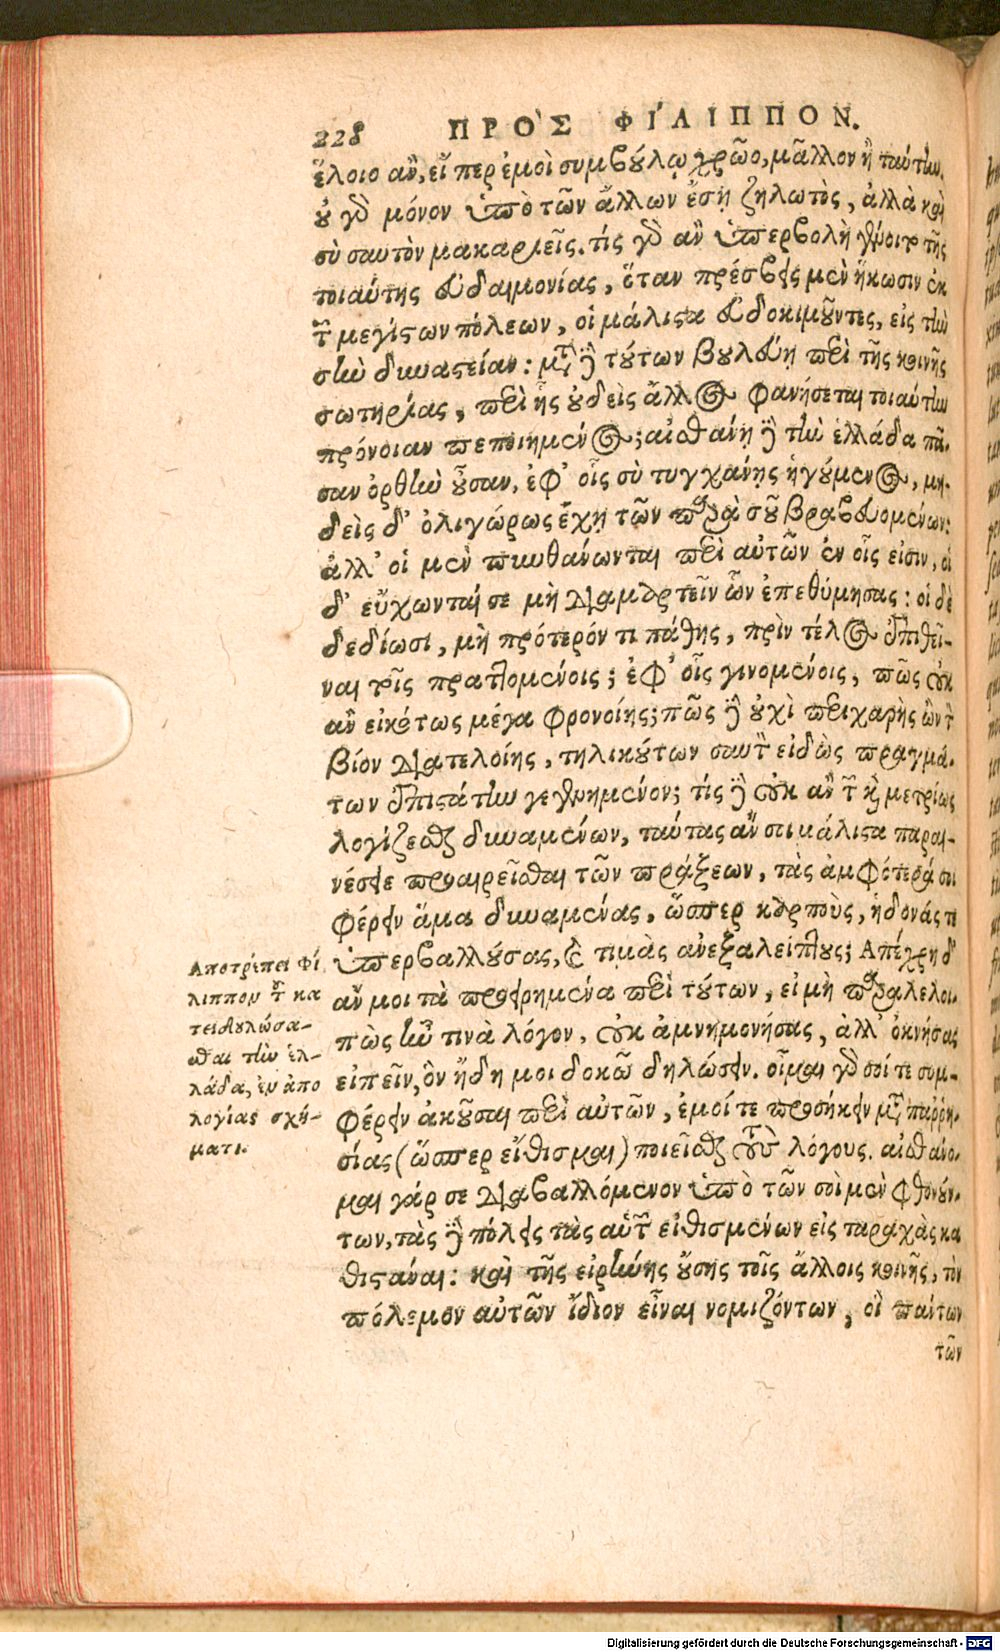 228 ΠΡΟ`Σ ΦΙ´ΛΙΠΠΟΝ.
ἕλοιο ἂν, εἴ περ ἐμοὶ συμβούλῳ χρῷο, μᾶλλον ἢ ταύτην.
οὐ γὸ μόνον ὑπὸ τῶν ἄλλων ἔσῃ ζηλωτὸς, ἀλλὰ καὶ
σὺ σαυτὸν μακαριεῖς. τίς γὸ ἂν ὑπερβολὴ γένοιτο τῆς
τοιαύτης εὐδαιμονίας, ὅταν πρέσβεις μὲν ἥκωσιν ἐκ
τῶν μεγίστων πόλεων, οἱ μάλιστα εὐδοκιμοῦντες, εἰς τὴν
σὴν δυναστείαν: μετὰ δὲ τούτων βουλεύῃ περὶ τῆς κοινῆς
σωτηρίας, περὶ ἧς οὐδεὶς ἄλλος φανήσεται τοιαύτην
πρόνοιαν πεποιημένος; αἰσθάνῃ δὲ τὴν ἑλλάδα πᾶ-
σαν ὀρθὴν οὖσαν, ἐφ' οἷς σὺ τυγχάνῃς ἡγούμενος, μη-
δεὶς δ' ὀλιγώρως ἔχῃ τῶν παρὰ σοῦ βραβευομένων:
ἀλλ' οἱ μὲν πυνθάνωνται περὶ αὐτῶν ἐν οἷς εἰσιν, οἱ
δ' εὔχωνταί σε μὴ διαμαρτεῖν ὧν ἐπεθύμησας: οἱ δὲ
δεδίωσι, μὴ πρότερόν τι πάθῃς, πρὶν τέλος ἐπιθεῖ-
ναι τοῖς πραττομένοις; ἐφ' οἷς γινομένοις, πῶς οὐκ
ἂν εἰκότως μέγα φρονοίης; πῶς δὲ οὐχὶ περιχαρὴς ὢν τὸν
βίον διατελοίης, τηλικούτων σαυτὸν εἰδὼς πραγμά-
των ἐπιστάτην γεγενημένον; τίς δὲ οὐκ ἂν τῶν καὶ μετρίως
λογίζεσθαι δυναμένων, ταύτας ἄν σοι μάλιστα παραι-
νέσειε προαιρεῖσθαι τῶν πράξεων, τὰς ἀμφότερά σοι
φέρειν ἅμα δυναμένας, ὥσπερ καρποὺς, ἡδονάς τε
ὑπερβαλλούσας, καὶ τιμὰς ἀνεξαλείπτους; Ἀπέχρη δ'
ἄν μοι τὰ προειρημένα περὶ τούτων, εἰ μὴ παραλελοι-
πὼς ἦν τινὰ λόγον, οὐκ ἀμνημονήσας, ἀλλ' ὀκνήσας
εἰπεῖν, ὃν ἤδη μοι δοκῶ δηλώσειν. οἶμαι γὸ σοί τε συμ-
φέρειν ἀκοῦσαι περὶ αὐτῶν, ἐμοί τε προσήκειν μετὰ παῤῥη-
σίας (ὥσπερ εἴθισμαι) ποιεῖσθαι τοὺς λόγους. αἰσθάνο-
μαι γάρ σε διαβαλλόμενον ὑπὸ τῶν σοὶ μὲν φθονούν-
των, τὰς δὲ πόλεις τὰς αὑτῶν εἰθισμένων εἰς ταραχὰς κα
θιστάναι: καὶ τῆς εἰρήνης οὔσης τοῖς ἄλλοις κοινῆς, τὸν
πόλεμον αὐτῶν ἴδιον εἶναι νομιζόντων, οἳ πάντων
τῶν
Αποτρέπει Φί
λιππον τοῦ κα
ταδουλώσα-
σθαι τὴν ἑλ-
λάδα, ἐν ἀπο
λογίας σχή-
ματι.
Digitalisierung gefördert durch die Deutsche Forschungsgemeinschaft - DFG